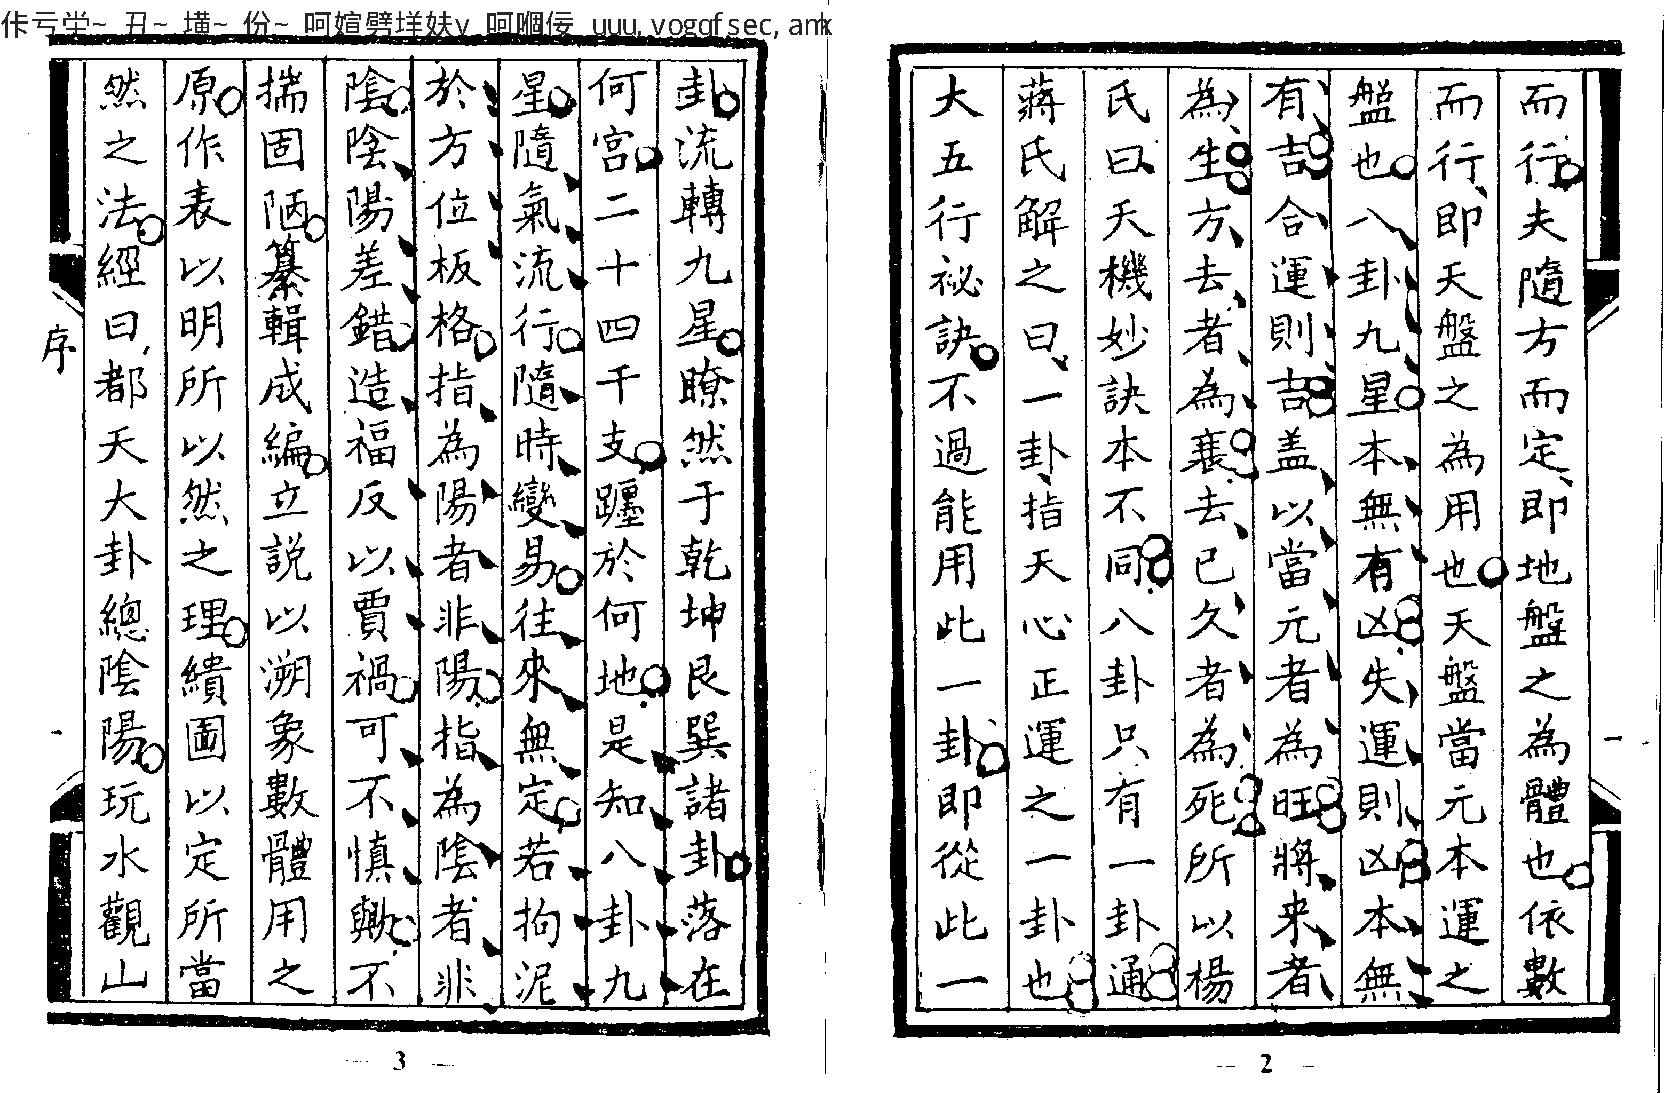 佧亏坣~ 丑~ 墴~ 份~ 呵媗劈垟妋v 呵嘓佞 uuu, vogqfsec, amk
而行夫隨方而定、即地盤之為體也依數
而行、即天盤之為用也天盤當元本運之
盤也八卦九星本無有凶失運則凶本無
有吉合運則吉盖以當元者為旺將来者
為生方去者為衰去已久者為死所以楊
氏曰、天機妙訣本不同八卦只有一卦通
蔣氏解之曰、一卦、指天心正運之一卦也
大五行祕訣不過能用此一卦即從此一
— 2 —
卦流轉九星瞭然于乾坤艮巽諸卦落在
何宮二十四干支躔於何地是知八卦九
星隨氣流行隨時變易往來無定若拘泥
於方位板格指為陽者非陽指為陰者非
陰陰陽差錯造福反以賈禍可不慎歟不
揣固陋纂輯成編立説以溯象數體用之
原作表以明所以然之理繢圖以定所當
然之法經曰、都天大卦總陰陽玩水觀山
序
— 3 —